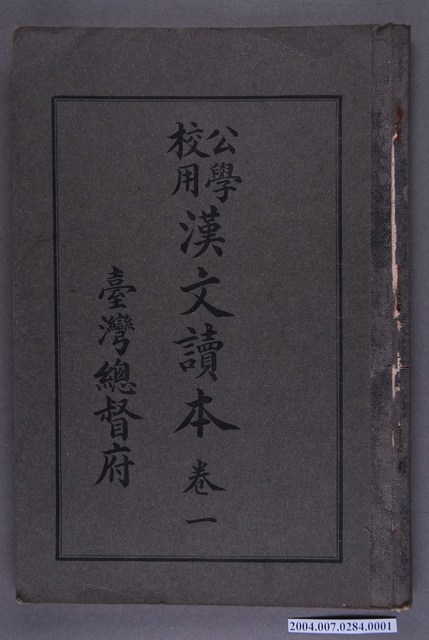 公學校用漢文讀本 卷一
臺灣總督府
2004.007.0284.0001